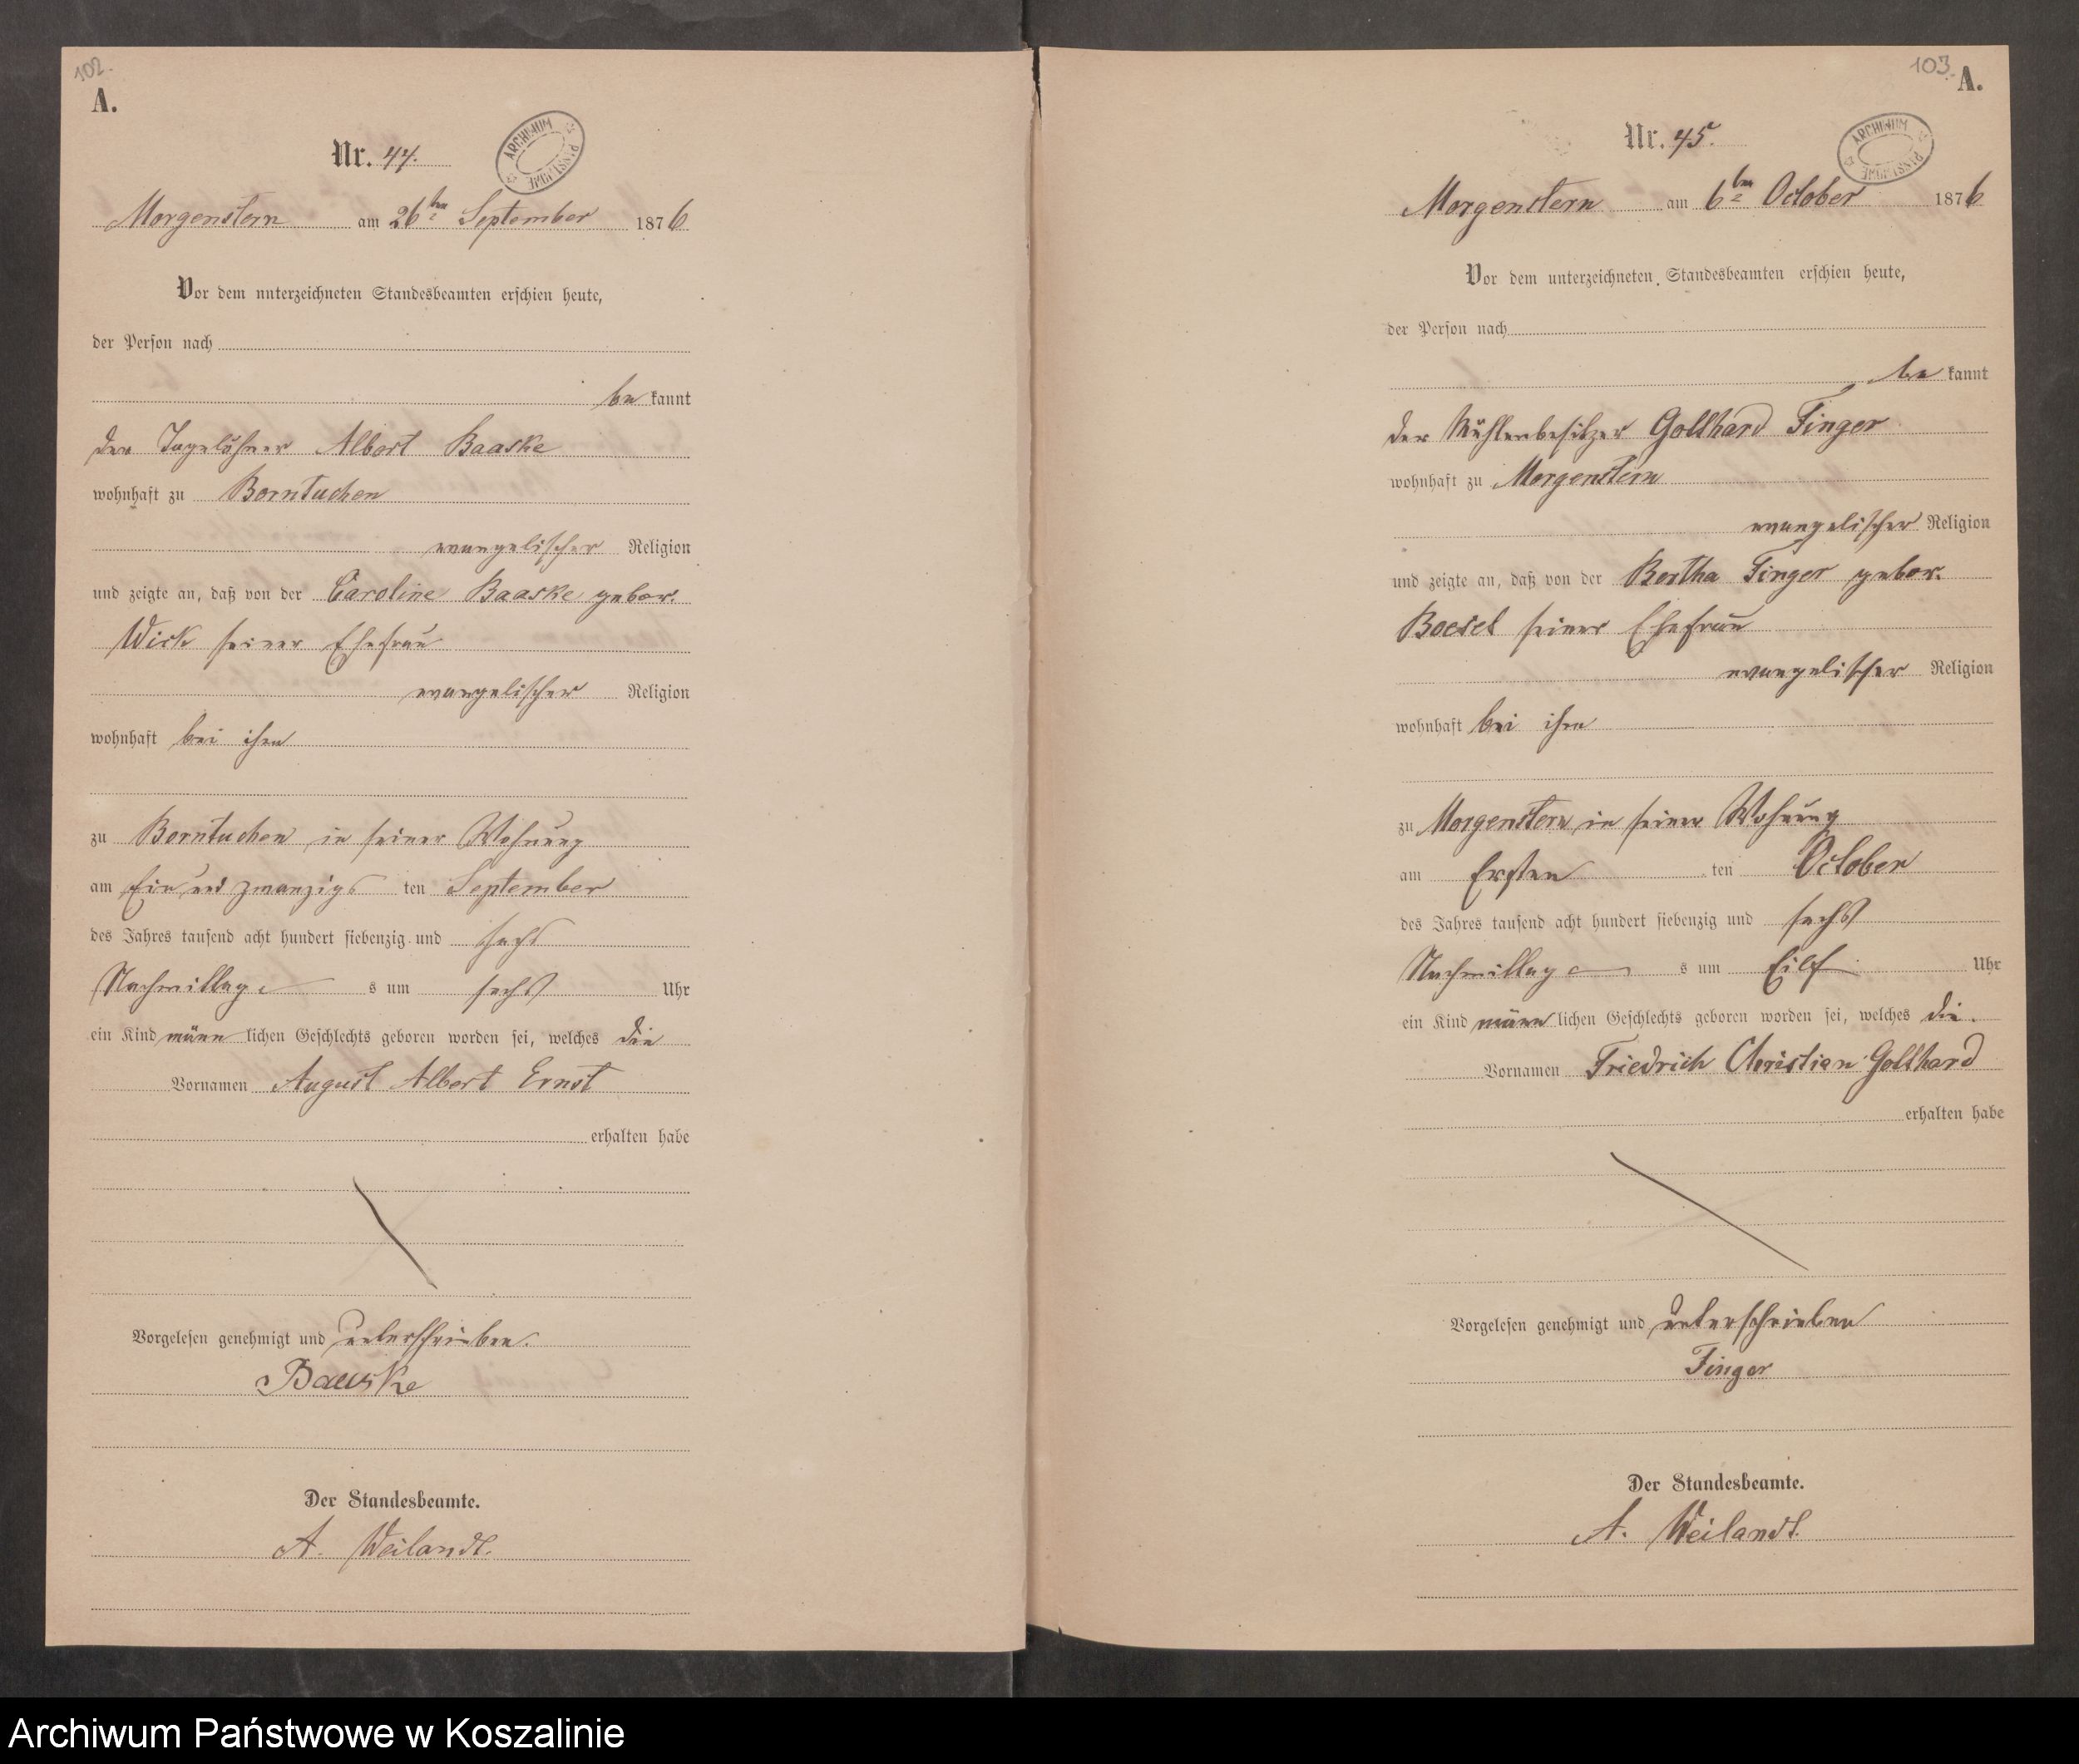 102.
A.
ARCHIWUM PAŃSTWOWE
Nr. 44.
Morgenstern am 26ten September 1876
Vor dem unterzeichneten Standesbeamten erschien heute,
der Person nach
be kannt
der Tagelöhner Albert Baaske
wohnhaft zu Borntuchen
evangelischer Religion
und zeigte an, daß von der Caroline Baaske gebor.
Wick seiner Ehefrau
evangelischer Religion
wohnhaft bei ihm
zu Borntuchen in seiner Wohnung
am Ein und zwanzigs ten September
des Jahres tausend acht hundert siebenzig und sechs
Nachmittag s um sechs Uhr
ein Kind männ lichen Geschlechts geboren worden sei, welches die
Vornamen August Albert Ernst
erhalten habe
Vorgelesen genehmigt und unterschrieben.
Baaske
Der Standesbeamte.
A. Weilandt.
103.
A.
ARCHIWUM PAŃSTWOWE
Nr. 45.
Morgenstern am 6ten October 1876
Vor dem unterzeichneten Standesbeamten erschien heute,
der Person nach
be kannt
der Mühlenbesitzer Gotthard Finger
wohnhaft zu Morgenstern
evangelischer Religion
und zeigte an, daß von der Bertha Finger gebor.
Boesel seiner Ehefrau
evangelischer Religion
wohnhaft bei ihm
zu Morgenstern in seiner Wohnung
am Ersten ten October
des Jahres tausend acht hundert siebenzig und sechs
Nachmittag s um Eilf Uhr
ein Kind männ lichen Geschlechts geboren worden sei, welches die
Vornamen Friedrich Christian Gotthard
erhalten habe
Vorgelesen genehmigt und unterschrieben
Finger
Der Standesbeamte.
A. Weilandt.
Archiwum Państwowe w Koszalinie